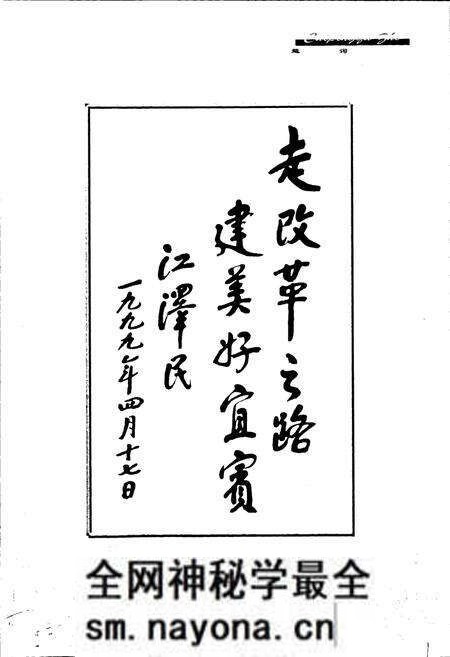 题词
走改革之路
建美好宜宾
江泽民
一九九九年四月十七日
全网神秘学最全
sm.nayona.cn